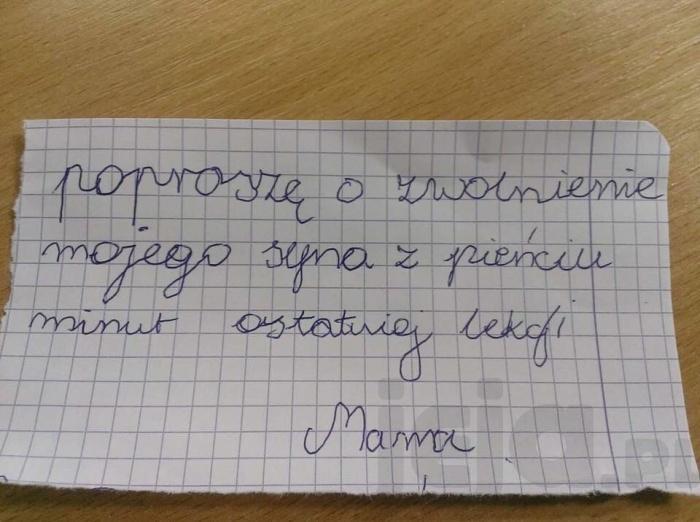 poproszę o zwolnienie
mojego syna z pieńciu
minut ostatniej lekcji
Mama
jeja.pl